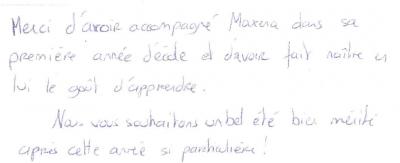 Merci d'avoir accompagné Maxena dans sa
première année d'école et d'avoir fait naître en
lui le goût d'apprendre.
Nous vous souhaitons un bel été bien mérité
après cette année si particulière !